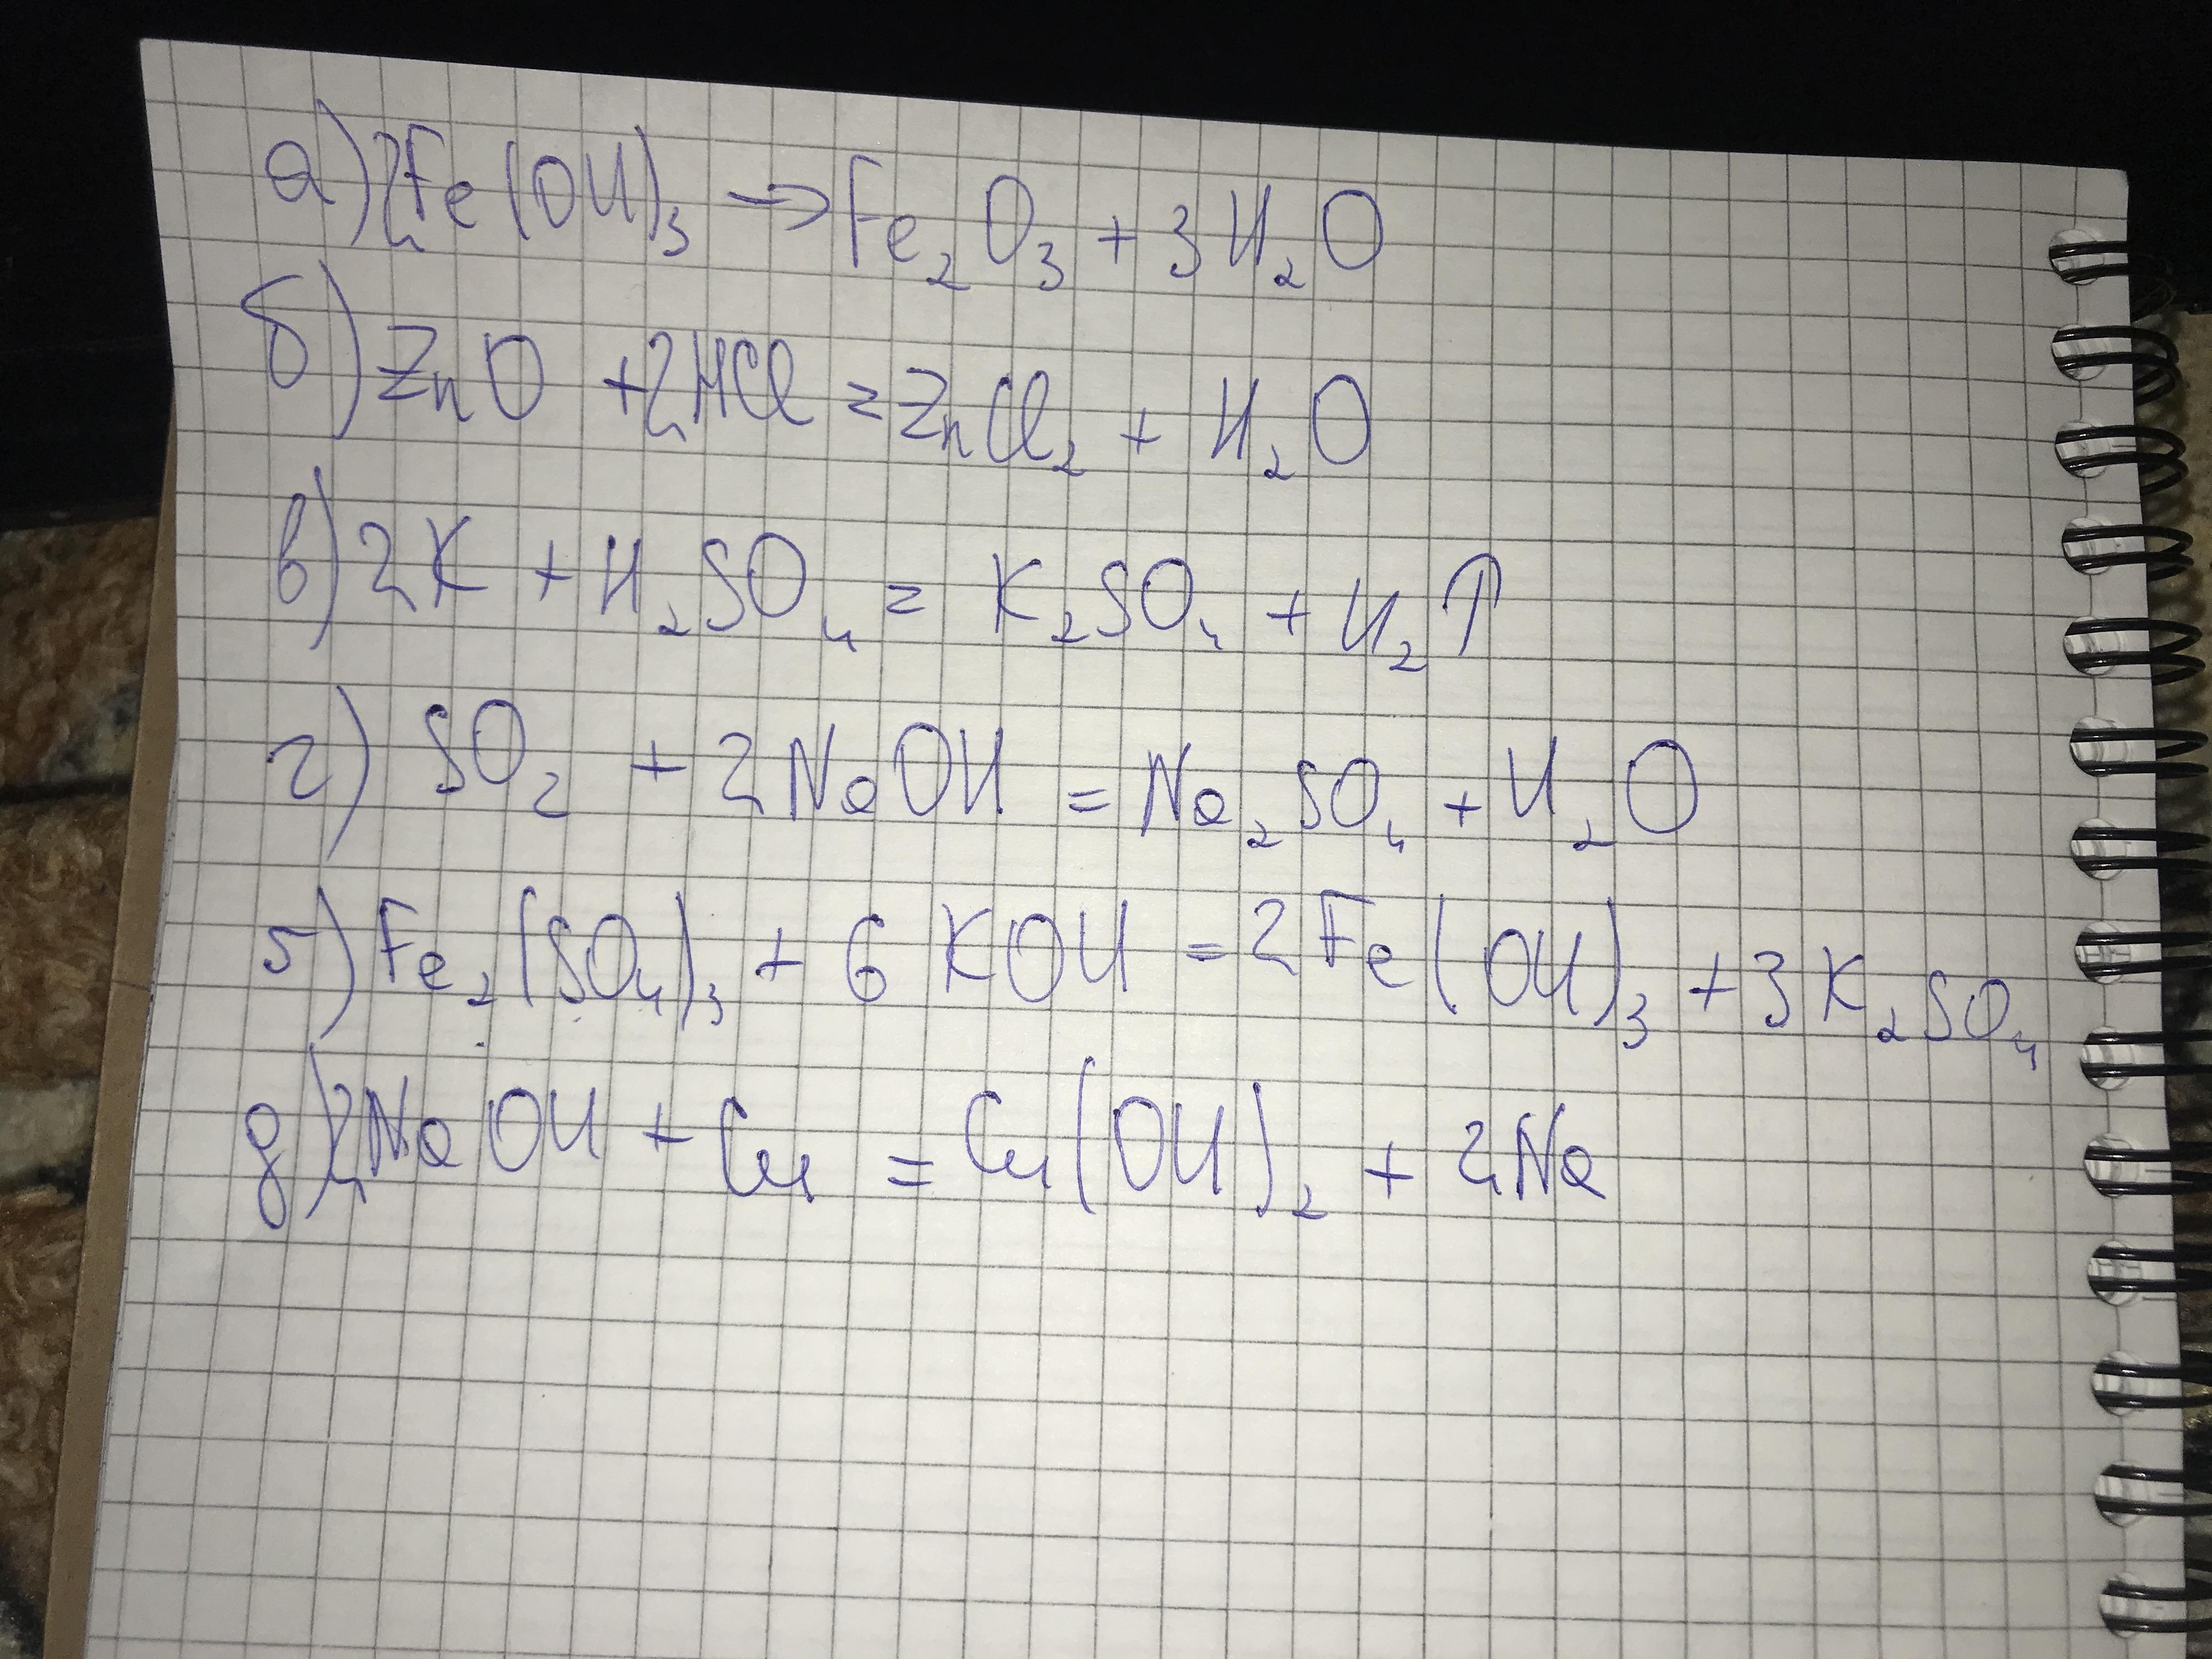 а) 2Fe(OH)₃ → Fe₂O₃ + 3H₂O
б) ZnO + 2HCl = ZnCl₂ + H₂O
в) 2K + H₂SO₄ = K₂SO₄ + H₂↑
г) SO₂ + 2NaOH = Na₂SO₄ + H₂O
5) Fe₂(SO₄)₃ + 6KOH = 2Fe(OH)₃ + 3K₂SO₄
д) 2NaOH + Cu = Cu(OH)₂ + 2Na